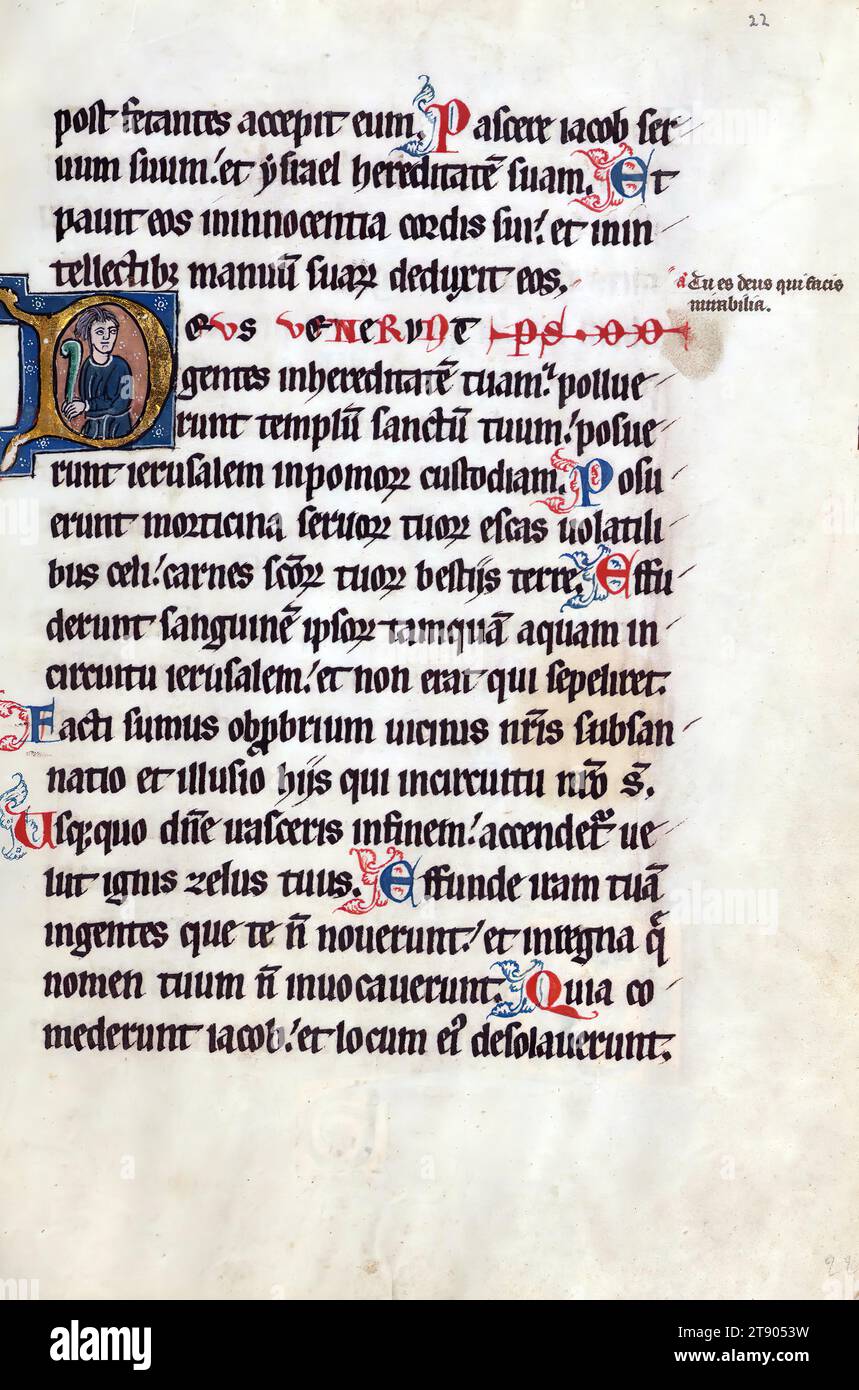 22
post fetantes accepit eum. Pascere iacob ser
uum suum: et ysrael hereditatē suam. Et
pauit eos ininnocentia cordis sui: et inin
tellectibꝫ manuū suaꝝ deduxit eos.
a Tu es deus qui facis
mirabilia.
DEVS VENERVNT ps.
gentes inhereditatē tuam: pollue
runt templū sanctum tuum: posue
runt ierusalem inpomoꝝ custodiam. Posu
erunt morticina seruoꝝ tuoꝝ escas uolatili
bus celi: carnes scōꝝ tuoꝝ bestijs terre. Effu
derunt sanguinē ipsoꝝ tamquā aquam in
circuitu ierusalem: et non erat qui sepeliret.
Facti sumus obprbrium uicinis nr̄is subsan
natio et illusio hijs qui incircuitu nr̄o s̄.
Usqꝫquo dn̄e irasceris infinem: accendet᷑ ue
lut ignis zelus tuus. Effunde iram tuā
ingentes que te n̄ nouerunt: et inregna q̄
nomen tuum n̄ inuocauerunt. Quia co
mederunt iacob: et locum ei᷒ desolauerunt.
alamy
Image ID: 2T9053W
www.alamy.com